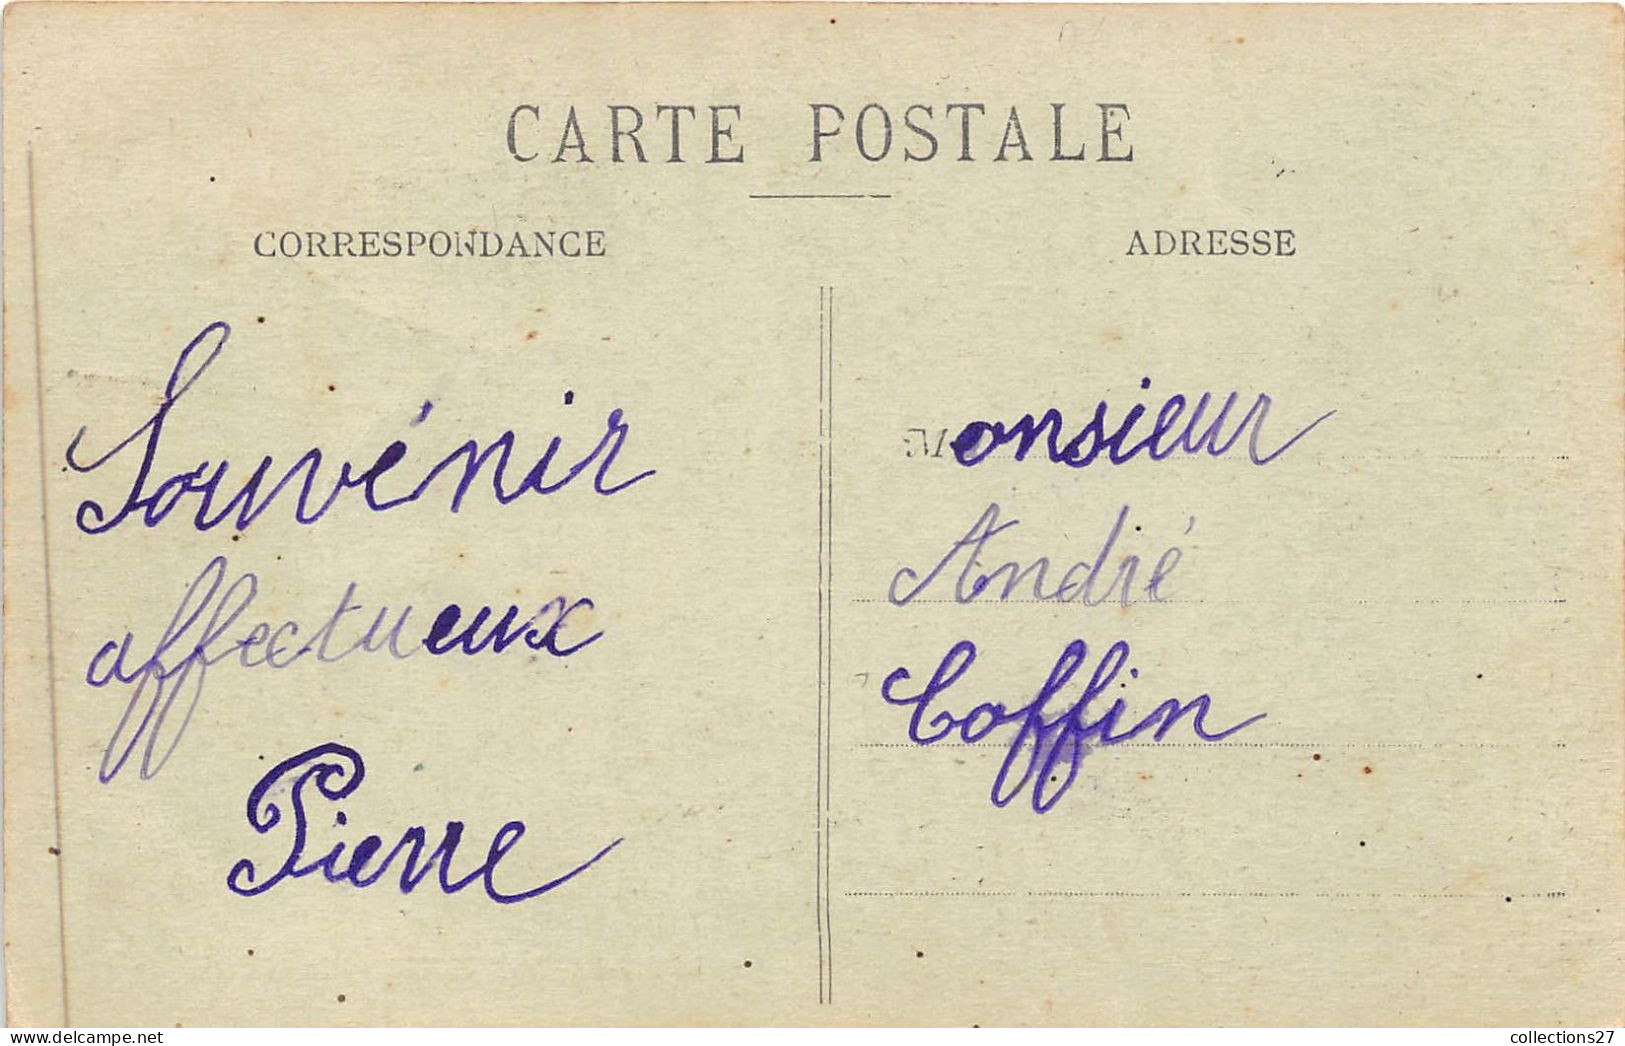 CARTE POSTALE
CORRESPONDANCE
ADRESSE
Souvénir
affectueux
Pierre
Monsieur
André
Coffin
collections27